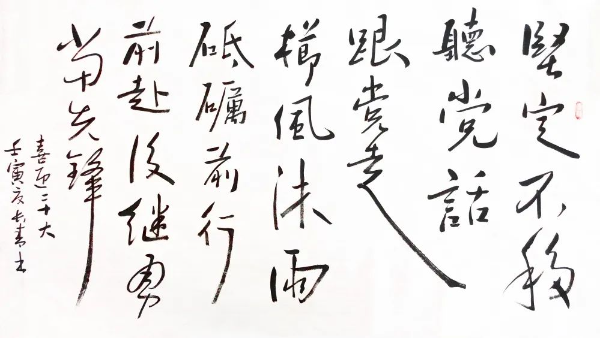 堅定不移
聽党話
跟党走
櫛風沐雨
砥礪前行
前赴後继勇
当先鋒
喜迎二十大
壬寅夏